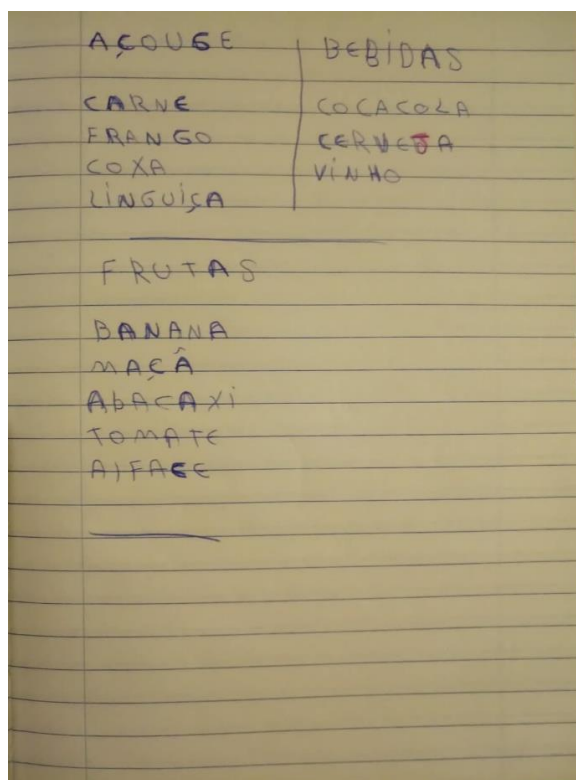 AÇOUGE
CARNE
FRANGO
COXA
LINGUIÇA
BEBIDAS
COCACOLA
CERVEJA
VINHO
FRUTAS
BANANA
MAÇÂ
AbACAXI
TOMATE
AlFACE